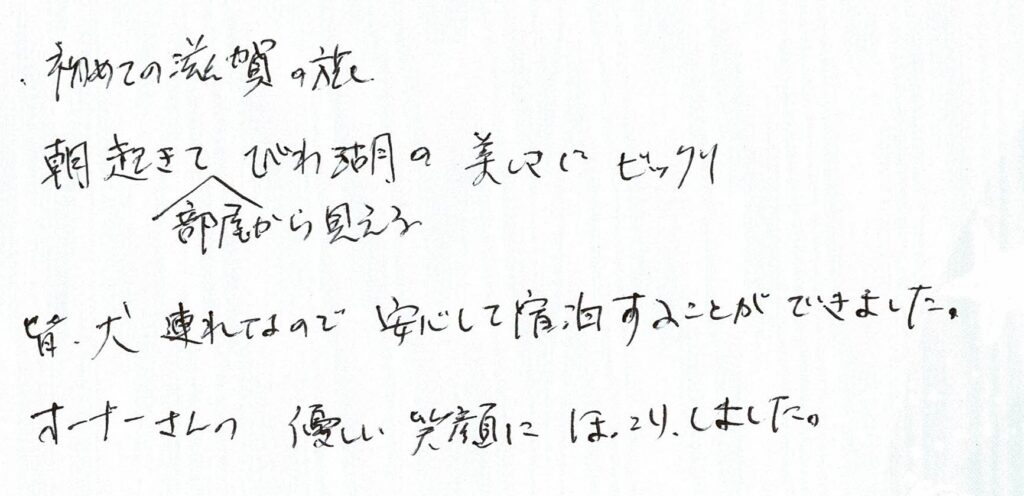 ・初めての滋賀の旅
朝起きて びわ湖の 美しさに ビックリ
部屋から見える
皆、犬 連れなので 安心して宿泊することができました。
オーナーさんの 優しい 笑顔に ほっこり、しました。